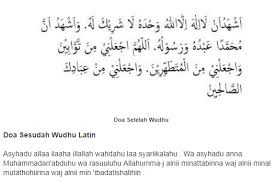 اَشْهَدُاَنْ لَااِلٰهَ اِلَّااللّٰهُ وَحْدَهُ لَا شَرِيْكَ لَهُ. وَاَشْهَدُ اَنَّ
مُحَمَّدًا عَبْدُهُ وَرَسُوْلُهُ. اَللّٰهُمَّ اجْعَلْنِيْ مِنَ التَّوَّابِيْنَ
وَاجْعَلْنِيْ مِنَ الْمُتَطَهِّرِيْنَ. وَاجْعَلْنِيْ مِنْ عِبَادِكَ
الصَّالِحِيْنَ
Doa Setelah Wudhu
Doa Sesudah Wudhu Latin
Asyhadu allaa ilaaha illallah wahdahu laa syariikalahu . Wa asyhadu anna
Muhammadan'abduhu wa rasuuluhu Allahumm-j alnii minattabinna waj alnii minal
mutathohiirina waj alnii min 'ibadatishalihin